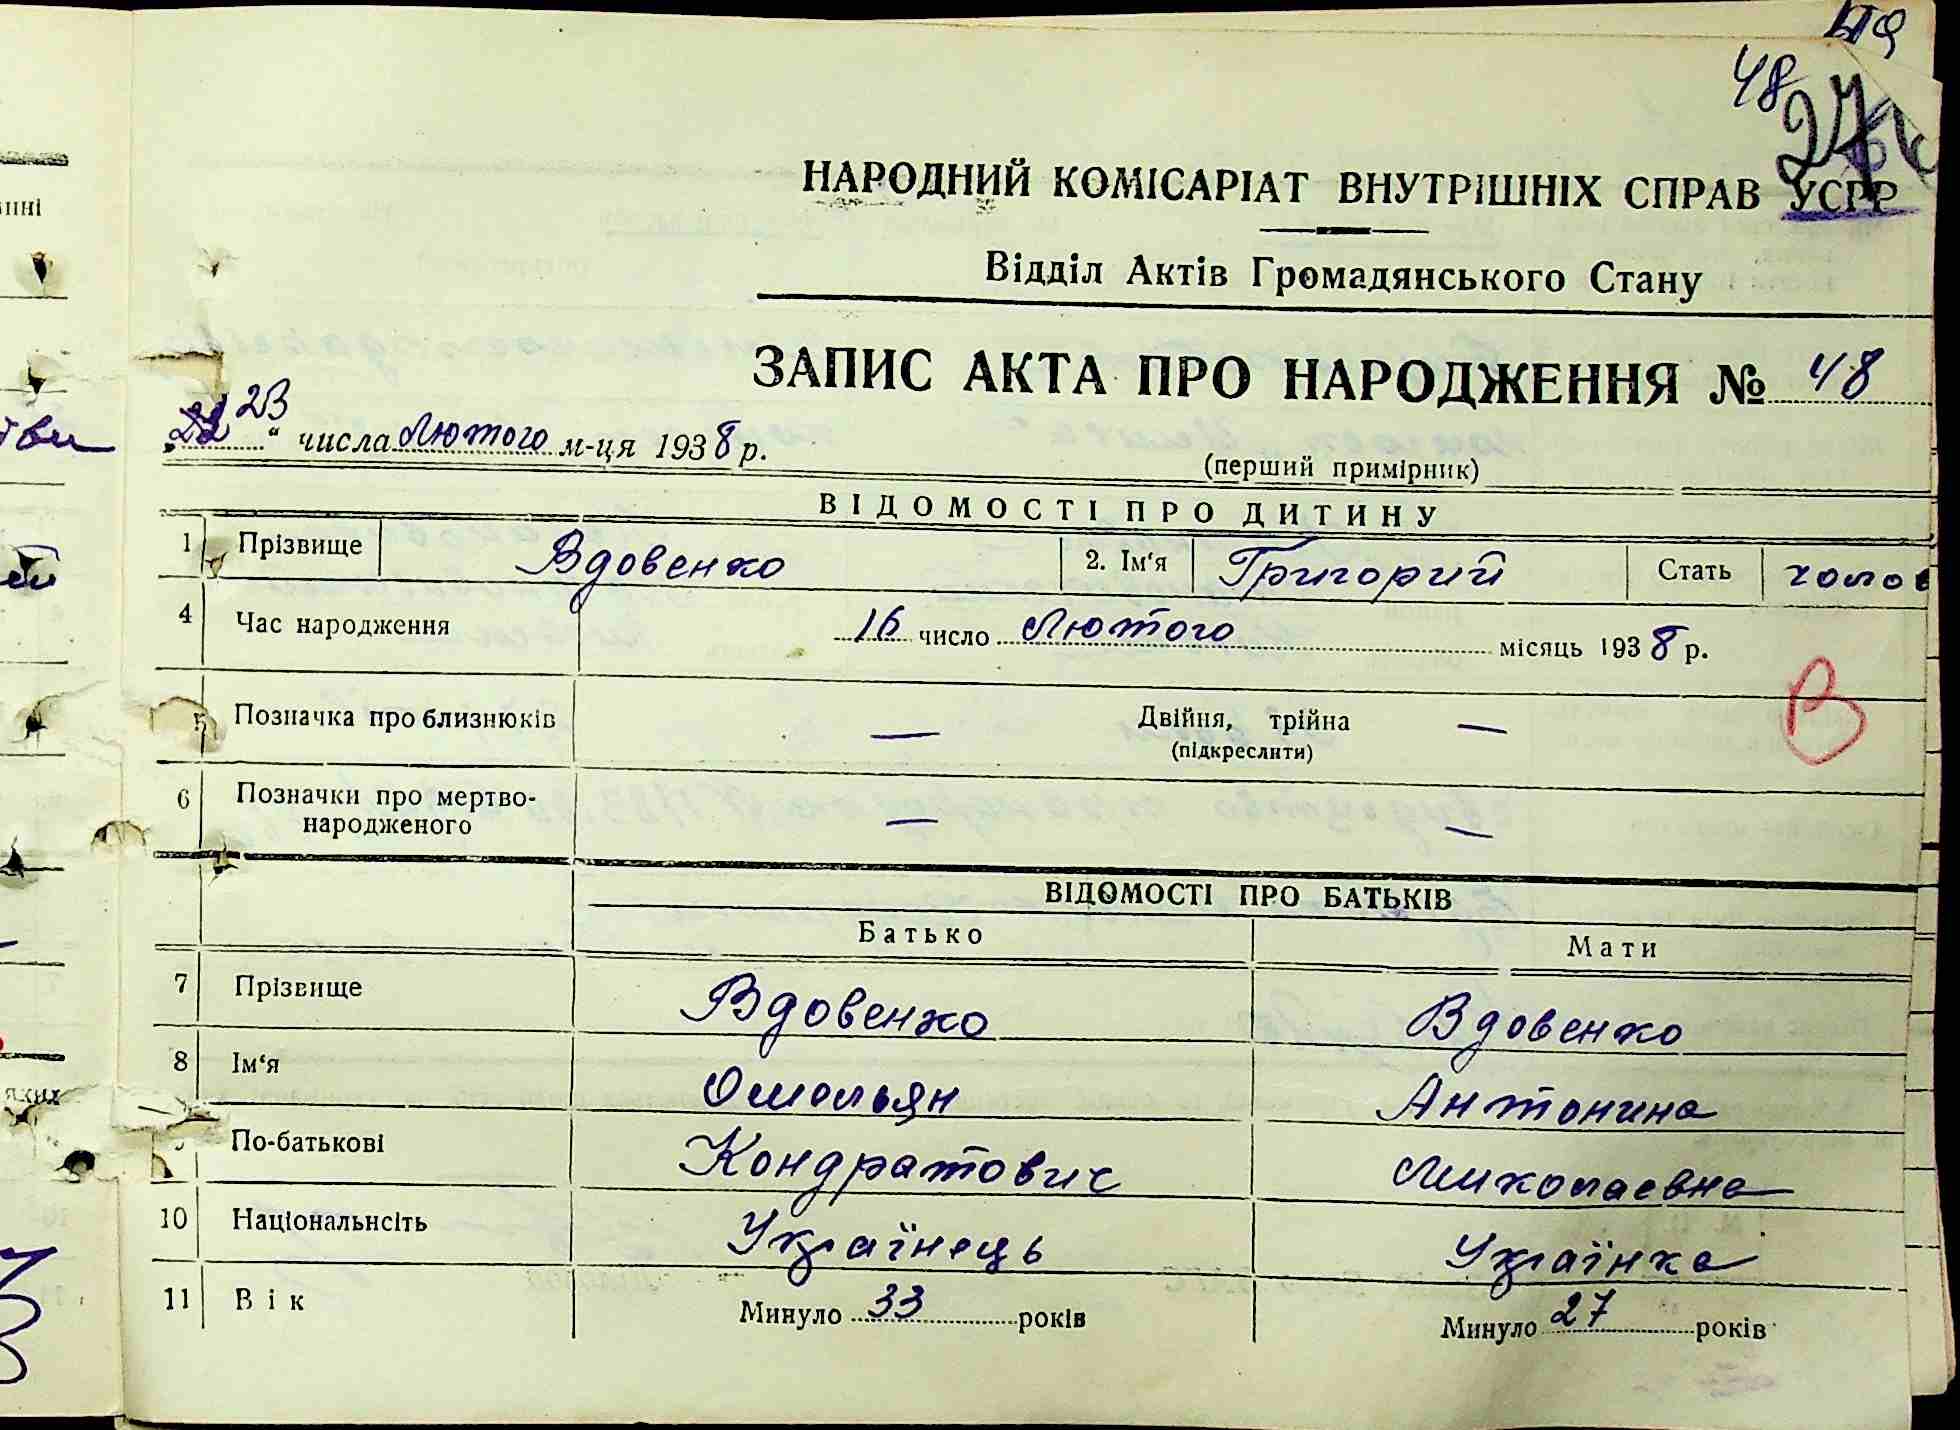 48
НАРОДНИЙ КОМІСАРІАТ ВНУТРІШНІХ СПРАВ УСРР
Відділ Актів Громадянського Стану
ЗАПИС АКТА ПРО НАРОДЖЕННЯ № 48
23 числа Лютого м-ця 1938 р.
(перший примірник)
ВІДОМОСТІ ПРО ДИТИНУ
1 Прізвище Вдовенко 2. Ім'я Григорий Стать чолов
4 Час народження 16 число Лютого місяць 1938 р.
В
5 Позначка про близнюків — Двійня, трійна —
(підкреслити)
6 Позначки про мертво-
народженого — —
ВІДОМОСТІ ПРО БАТЬКІВ
Батько Мати
7 Прізвище Вдовенко Вдовенко
8 Ім'я Омельян Антонина
9 По-батькові Кондратович Миколаевна
10 Національнсіть Українець Українка
11 Вік Минуло 33 років Минуло 27 років